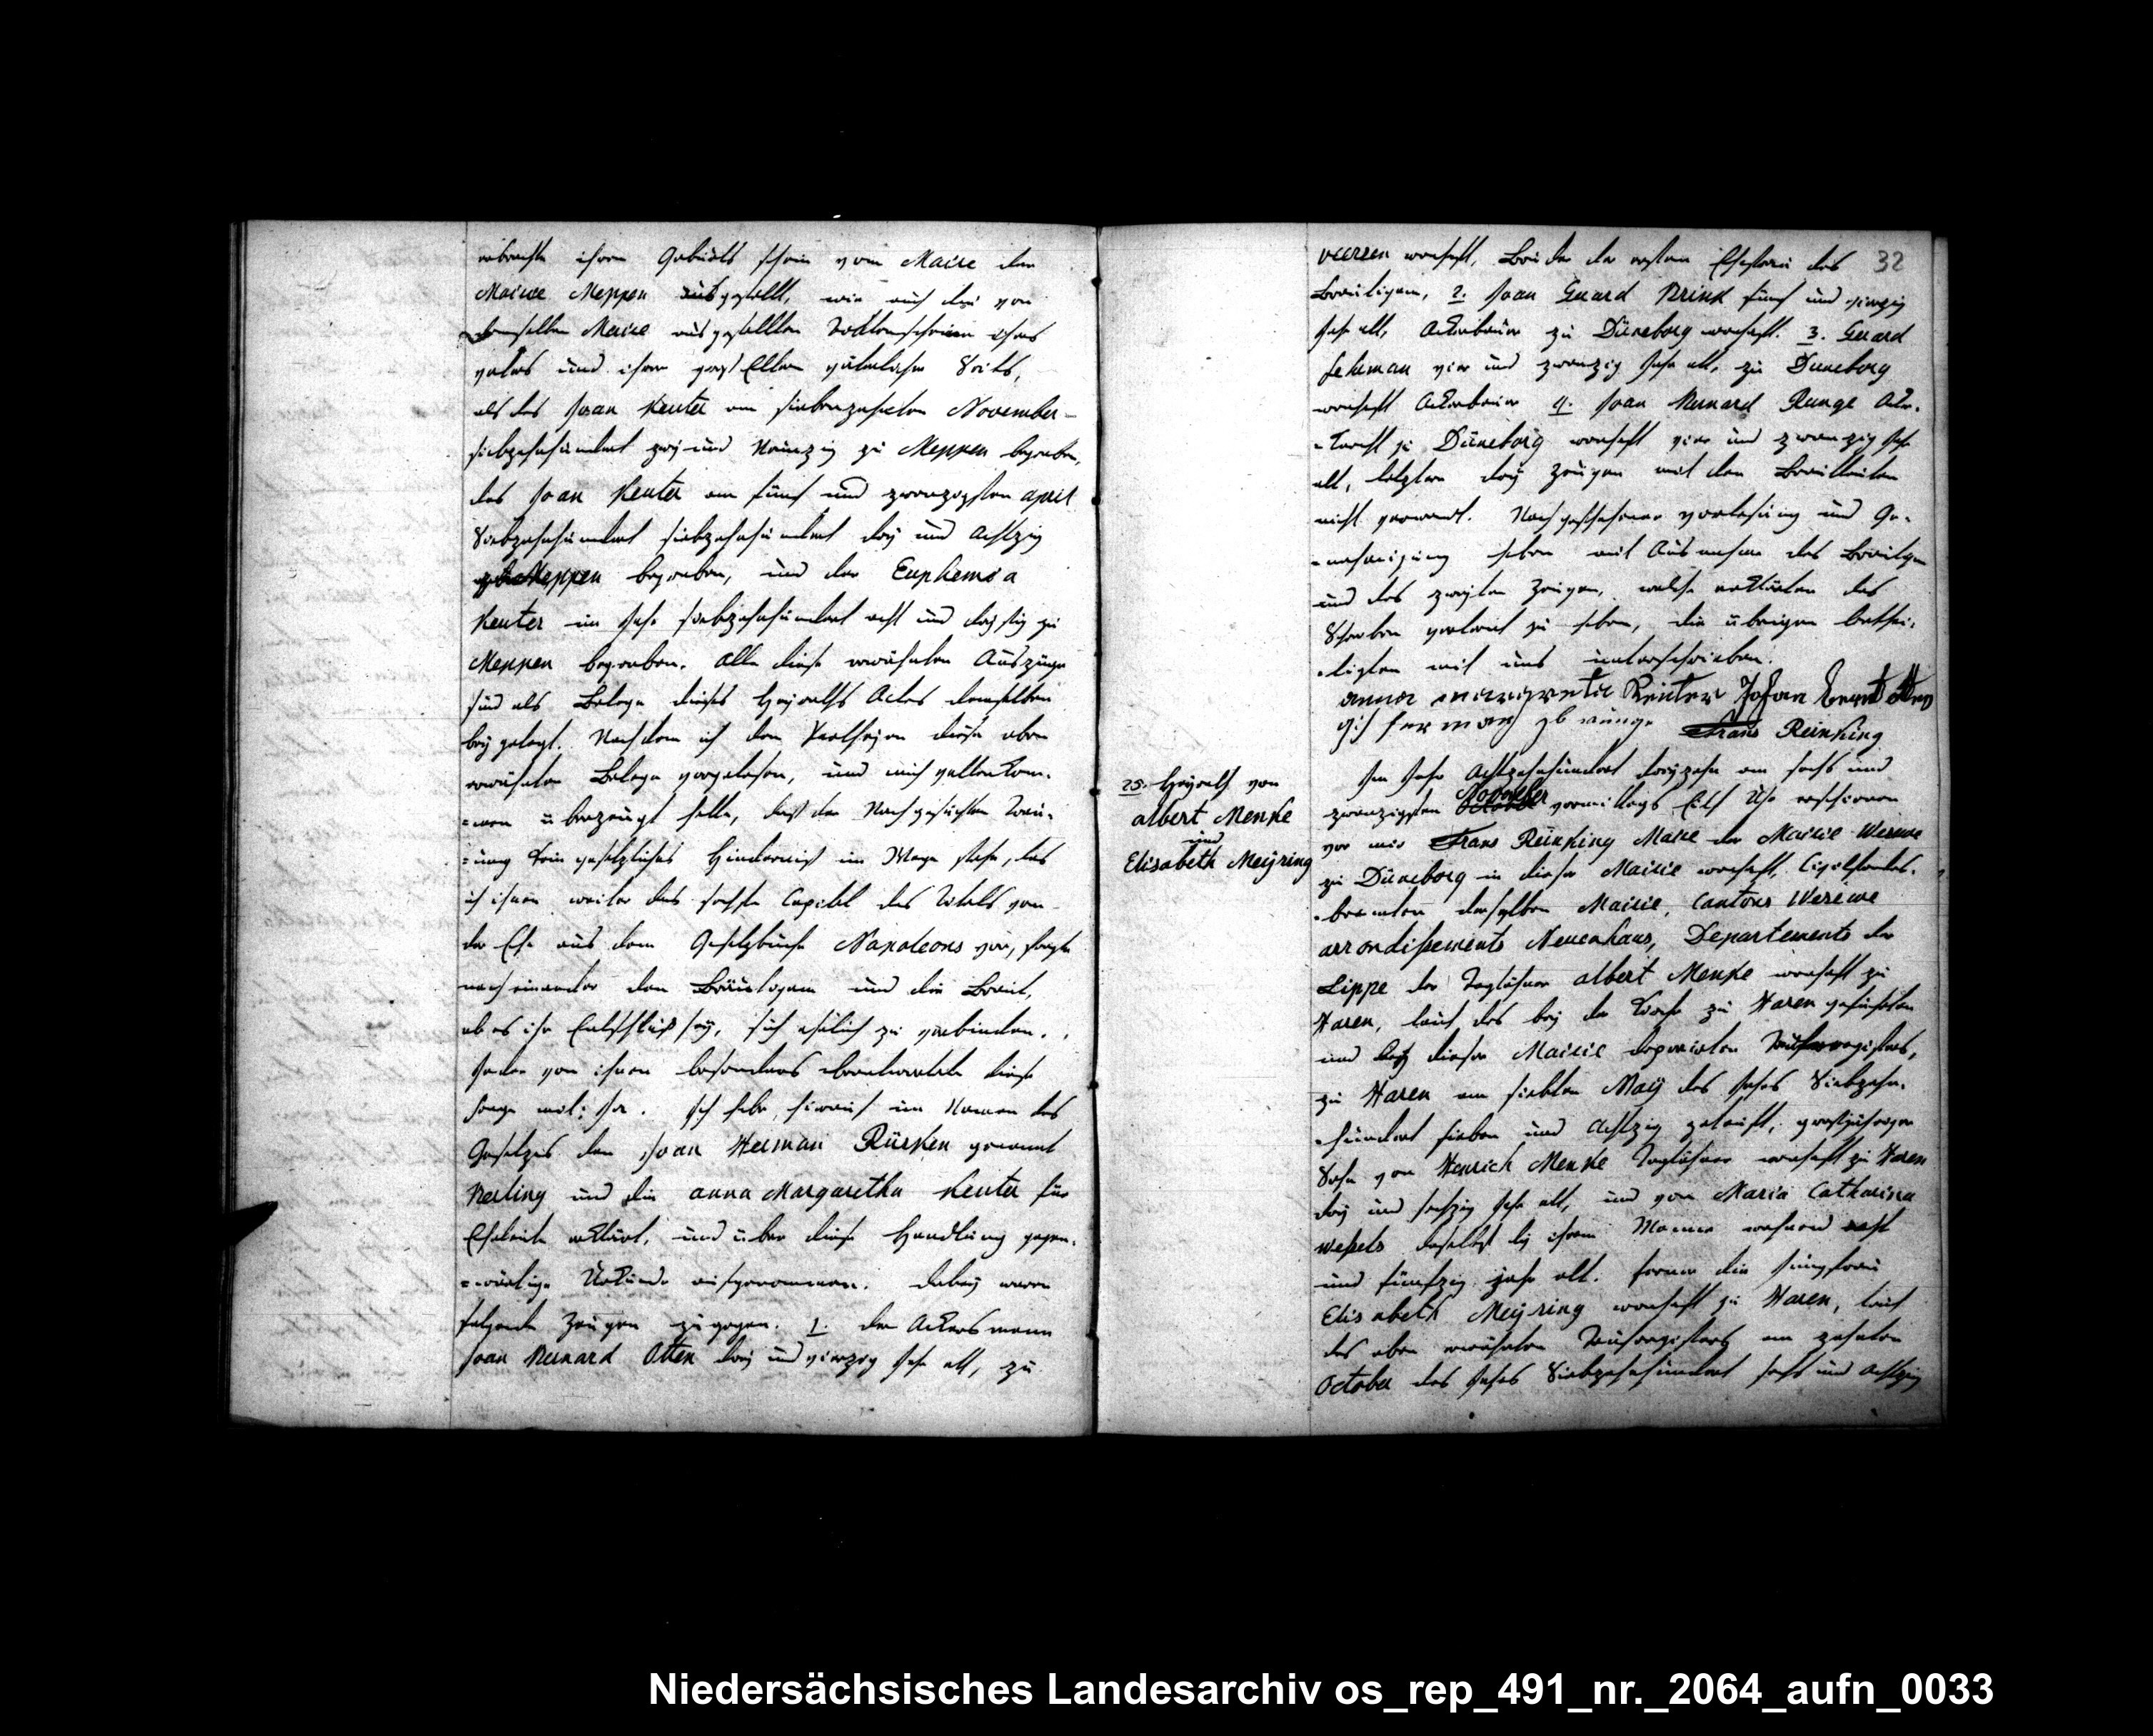 erbrachte ihren Geburts schein vom Maire der
Mairie Meppen ausgestellt, wie auch die von
demselben Maire ausgestellten Todtenscheinen ihres
vaters und ihrer groß Eltern väterlicher Seits,
als des Joan Keuter am siebenzehnten November
siebzehnhundert zwei und Neunzig zu Meppen begraben,
des Joan Keuter am fünf und zwanzigsten april
Siebzehnhundert siebzehnhundert drey und Achtzig
zu Meppen begraben, und der Euphemia
Keuter im Jahr siebzehnhundert acht und zu
Meppen begraben. Alle diese erwähnten Auszüge
sind als Belege dieses Heyraths Actes demselben
bey gelegt. Nachdem ich den Partheyen diese oben
erwähnten Belege vorgelesen, und mich vollenkom-
=men überzeugt hatte, daß der Nachgesuchten Trau-
=ung kein gesetzliches Hinderniß im Wege stehe, las
ich ihnen weiter das sechste Capitel des Titels von
der Ehe aus dem Gesetzbuche Napoleons vor, fragte
nach einander den Bräutigam und die Braut,
ob es ihr Entschluß sey, sich ehelich zu verbinden.
Jeder von ihnen besonders beantwortete diese
Frage mit: Ja. Ich habe hierauf im Namen des
Gesetzes den Joan Herman Rürken genannt
Nerling und die anna Margaretha Keuter für
Eheleute erklärt, und über diese Handlung gegen-
=wärtige Urkunde aufgenommen. Dabey waren
folgende Zeugen zugegen. 1. der Ackersmann
Joan Bernard Otten drey und vierzig Jahr alt, zu
32
veersen wohnhaft, Bruder der ersten Ehefrau des
Bräutigam, 2. Joan Gerard Brink fünf und vierzig
Jahr alt, Ackerbauer zu Düneborg wohnhaft. 3. Gerard
Fehrman vier und zwanzig Jahr alt, zu Duneborg
wohnhaft Ackerbauer 4. Joan Bernard Runge Acker-
=knecht zu Düneborg wohnhaft vier und zwanzig Jahr
alt, letztere drey Zeugen mit den Brautleuten
nicht verwandt. Nach geschehener vorlesung und Ge-
=nehmigung haben mit Ausnahme des Bräutigam
und des zweyten Zeugen, welche erklärten das
Schreiben verlernt zu haben, die übrigen bethei-
=ligten mit uns unterschrieben.
anna margareta Keuter Johan Berent Otten
Frans Reinking
25. Heyrath von
albert Menke
und
Elisabeth Meÿring
Im Jahr Achtzehnhundert dreyzehn am sechs und
zwanzigsten November vormittags Eilf Uhr erschienen
vor mir Frans Reinking Maire der Mairie Wesuwe
zu Düneborg in dieser Mairie wohnhaft, Civilstandes-
=beamten derselben Mairie, Cantons Wesuwe
arrondißements Neuenhaus, Departements der
Lippe der Taglöhner albert Menke wohnhaft zu
Haren, laut des bey der Kirche zu Haren geführten
und bey dieser Mairie deponirten Taufregisters,
zu Haren am siebten Maÿ des Jahrs Siebzehn-
=hundert sieben und Achtzig getauft, großjähriger
Sohn von Henrich Menke Taglöhner wohnhaft zu Haren
drey und sechzig Jahr alt, und von Maria Catharina
Weßels daselbst bey ihrem Manne wohnend acht
und fünfzig jahr alt. Ferner die Jungfrau
Elisabeth Meÿring wohnhaft zu Haren, laut
des oben erwähnten Taufregisters am zehnten
October des Jahrs Siebzehnhundert sechs und Achtzig
Niedersächsisches Landesarchiv os_rep_491_nr._2064_aufn_0033